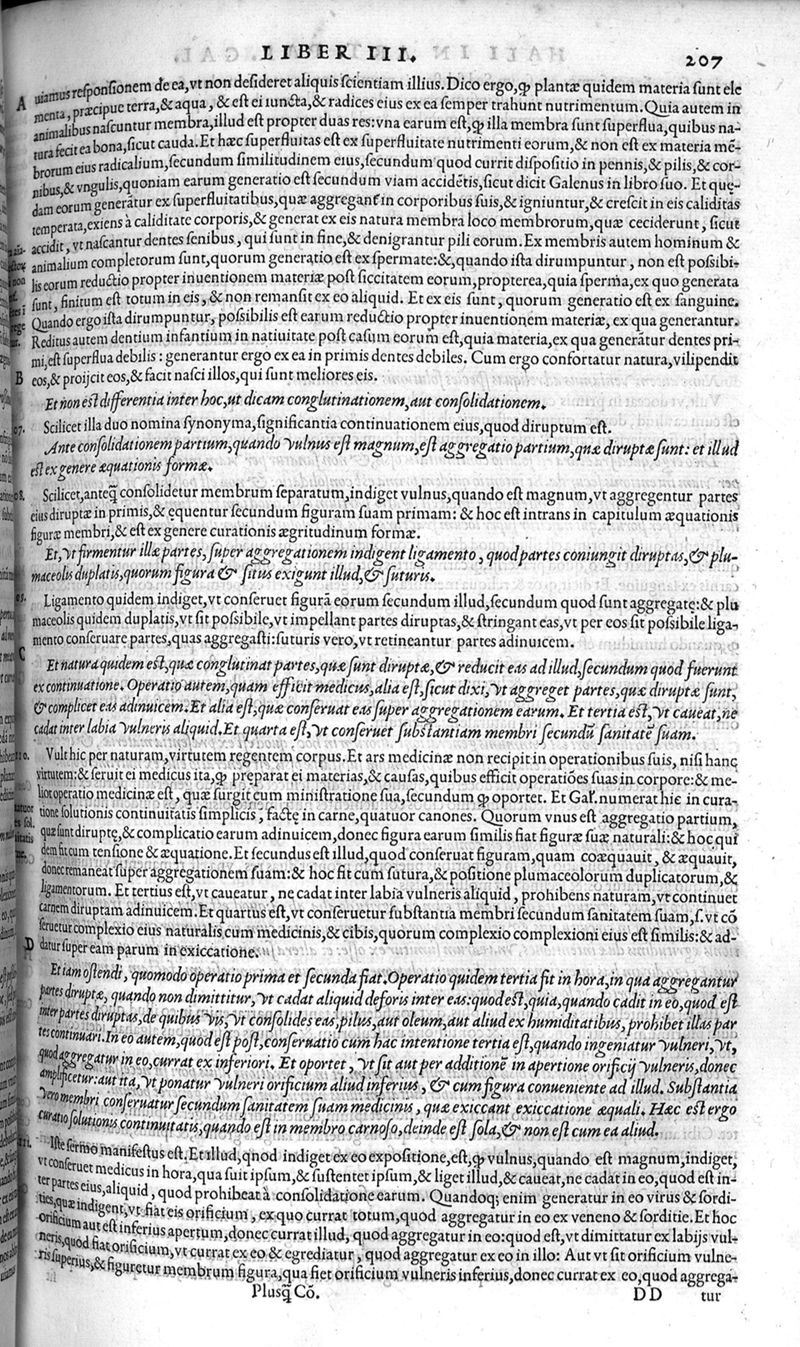 LIBER III.
207
A
uiamus responsionem de ea, vt non desideret aliquis scientiam illius. Dico ergo, ꝙ plantæ quidem materia sunt ele
menta, præcipue terra, & aqua, & est ei iuncta, & radices eius ex ea semper trahunt nutrimentum. Quia autem in
animalibus nascuntur membra, illud est propter duas res: vna earum est, ꝙ illa membra sunt superflua, quibus na-
tura fecit ea bona, sicut cauda. Et hæc superfluitas est ex superfluitate nutrimenti eorum, & non est ex materia mẽ-
brorum eius radicalium, secundum similitudinem eius, secundum quod currit dispositio in pennis, & pilis, & cor-
nibus, & vngulis, quoniam earum generatio est secundum viam accidẽtis, sicut dicit Galenus in libro suo. Et quę-
dam eorum generãtur ex superfluitatibus, quæ aggregant in corporibus suis, & igniuntur, & crescit in eis caliditas
temperata, exiens à caliditate corporis, & generat ex eis natura membra loco membrorum, quæ ceciderunt, sicut
accidit, vt nascantur dentes senibus, qui sunt in fine, & denigrantur pili eorum. Ex membris autem hominum &
animalium completorum sunt, quorum generatio est ex spermate: &, quando ista dirumpuntur, non est possibi-
lis eorum reductio propter inuentionem materiæ post siccitatem eorum, propterea, quia sperma, ex quo generata
sunt, finitum est totum in eis, & non remansit ex eo aliquid. Et ex eis sunt, quorum generatio est ex sanguine.
Quando ergo ista dirumpuntur, possibilis est earum reductio propter inuentionem materiæ, ex qua generantur.
Reditus autem dentium infantium in natiuitate post casum eorum est, quia materia, ex qua generãtur dentes pri-
mi, est superflua debilis: generantur ergo ex ea in primis dentes debiles. Cum ergo confortatur natura, vilipendit
B
eos, & proijcit eos, & facit nasci illos, qui sunt meliores eis.
Et non est differentia inter hoc, ut dicam conglutinationem, aut consolidationem.
Scilicet illa duo nomina synonyma, significantia continuationem eius, quod diruptum est.
Ante consolidationem partium, quando vulnus est magnum, est aggregatio partium, quæ diruptæ sunt: et illud
est ex genere æquationis formæ.
Scilicet, anteq̃ consolidetur membrum separatum, indiget vulnus, quando est magnum, vt aggregentur partes
eius diruptæ in primis, & ęquentur secundum figuram suam primam: & hoc est intrans in capitulum æquationis
figuræ membri, & est ex genere curationis ægritudinum formæ.
Et, vt firmentur illæ partes, super aggregationem indigent ligamento, quod partes coniungit diruptas, & plu-
maceolis duplatis, quorum figura & situs exigunt illud, & suturis.
Ligamento quidem indiget, vt conseruet figurã eorum secundum illud, secundum quod sunt aggregatę: & plu
maceolis quidem duplatis, vt sit possibile, vt impellant partes diruptas, & stringant eas, vt per eos sit possibile liga-
mento conseruare partes, quas aggregasti: suturis vero, vt retineantur partes adinuicem.
C
Et natura quidem est, quæ conglutinat partes, quæ sunt diruptæ, & reducit eas ad illud, secundum quod fuerunt
ex continuatione. Operatio autem, quam efficit medicus, alia est, sicut dixi, vt aggreget partes, quæ diruptæ sunt,
& complicet eas adinuicem. Et alia est, quæ conseruat eas super aggregationem earum. Et tertia est, vt caueat, ne
cadat inter labia vulneris aliquid. Et quarta est, vt conseruet substantiam membri secundũ sanitatẽ suam.
Vult hic per naturam, virtutem regentem corpus. Et ars medicinæ non recipit in operationibus suis, nisi hanc
virtutem: & seruit ei medicus ita, ꝙ preparat ei materias, & causas, quibus efficit operatiões suas in corpore: & me-
lior operatio medicinæ est, quæ surgit cum ministratione sua, secundum ꝙ oportet. Et Gal'. numerat hic in cura-
tione solutionis continuitatis simplicis, factę in carne, quatuor canones. Quorum vnus est aggregatio partium,
quæ sunt diruptę, & complicatio earum adinuicem, donec figura earum similis fiat figuræ suæ naturali: & hoc qui
dem fit cum tensione & æquatione. Et secundus est illud, quod conseruat figuram, quam coæquauit, & æquauit,
donec remaneat super aggregationem suam: & hoc fit cum sutura, & positione plumaceolorum duplicatorum, &
ligamentorum. Et tertius est, vt caueatur, ne cadat inter labia vulneris aliquid, prohibens naturam, vt continuet
carnem diruptam adinuicem. Et quartus est, vt conseruetur substantia membri secundum sanitatem suam, s. vt cõ
seruetur complexio eius naturalis, cum medicinis, & cibis, quorum complexio complexioni eius est similis: & ad-
D
datur super eam parum in exiccatione.
Et iam ostendi, quomodo operatio prima et secunda fiat. Operatio quidem tertia fit in hora, in qua aggregantur
partes diruptæ, quando non dimittitur, vt cadat aliquid deforis inter eas: quod est, quia, quando cadit in eo, quod est
inter partes diruptas, de quibus vis, vt consolides eas, pilus, aut oleum, aut aliud ex humiditatibus, prohibet illas par
tes continuari. In eo autem, quod est post, conseruatio cum hac intentione tertia est, quando ingeniatur vulneri, vt,
quod aggregatur in eo, currat ex inferiori. Et oportet, vt sit aut per additionẽ in apertione orificij vulneris, donec
amplificetur: aut ita, vt ponatur vulneri orificium aliud inferius, & cum figura conueniente ad illud. Substantia
vero membri conseruatur secundum sanitatem suam medicinis, quæ exiccant exiccatione æquali. Hæc est ergo
curatio solutionis continuitatis, quando est in membro carnoso, deinde est sola, & non est cum ea aliud.
Iste sermo manifestus est. Et illud, qnod indiget ex eo expositione, est, ꝙ vulnus, quando est magnum, indiget,
vt conseruet medicus in hora, qua suit ipsum, & sustentet ipsum, & liget illud, & caueat, ne cadat in eo, quod est in-
ter partes eius, aliquid, quod prohibeat à consolidatione earum. Quandoq; enim generatur in eo virus & sordi-
ties, quæ indigent, vt fiat eis orificium, ex quo currat totum, quod aggregatur in eo ex veneno & sorditie. Et hoc
orificium aut est inferius apertum, donec currat illud, quod aggregatur in eo: quod est, vt dimittatur ex labijs vul-
neris, quod fiat orificium, vt currat ex eo & egrediatur, quod aggregatur ex eo in illo: Aut vt sit orificium vulne-
ris superius, & figuretur membrum figura, qua fiet orificium vulneris inferius, donec currat ex eo, quod aggrega-
Plusq̃ Cõ.
DD
tur